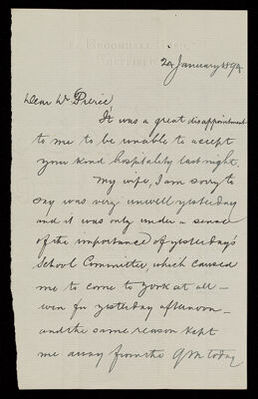 24 January 1894
Dear Mr Pierie
It was a great disappointment
to me to be unable to accept
your kind hospitality last night.
My wife, I am sorry to
say was very unwell yesterday
and it was only under a sense
of the importance of yesterday's
School Committee, which caused
me to come to York at all —
even for yesterday afternoon —
and the same reason kept
me away from the QM today